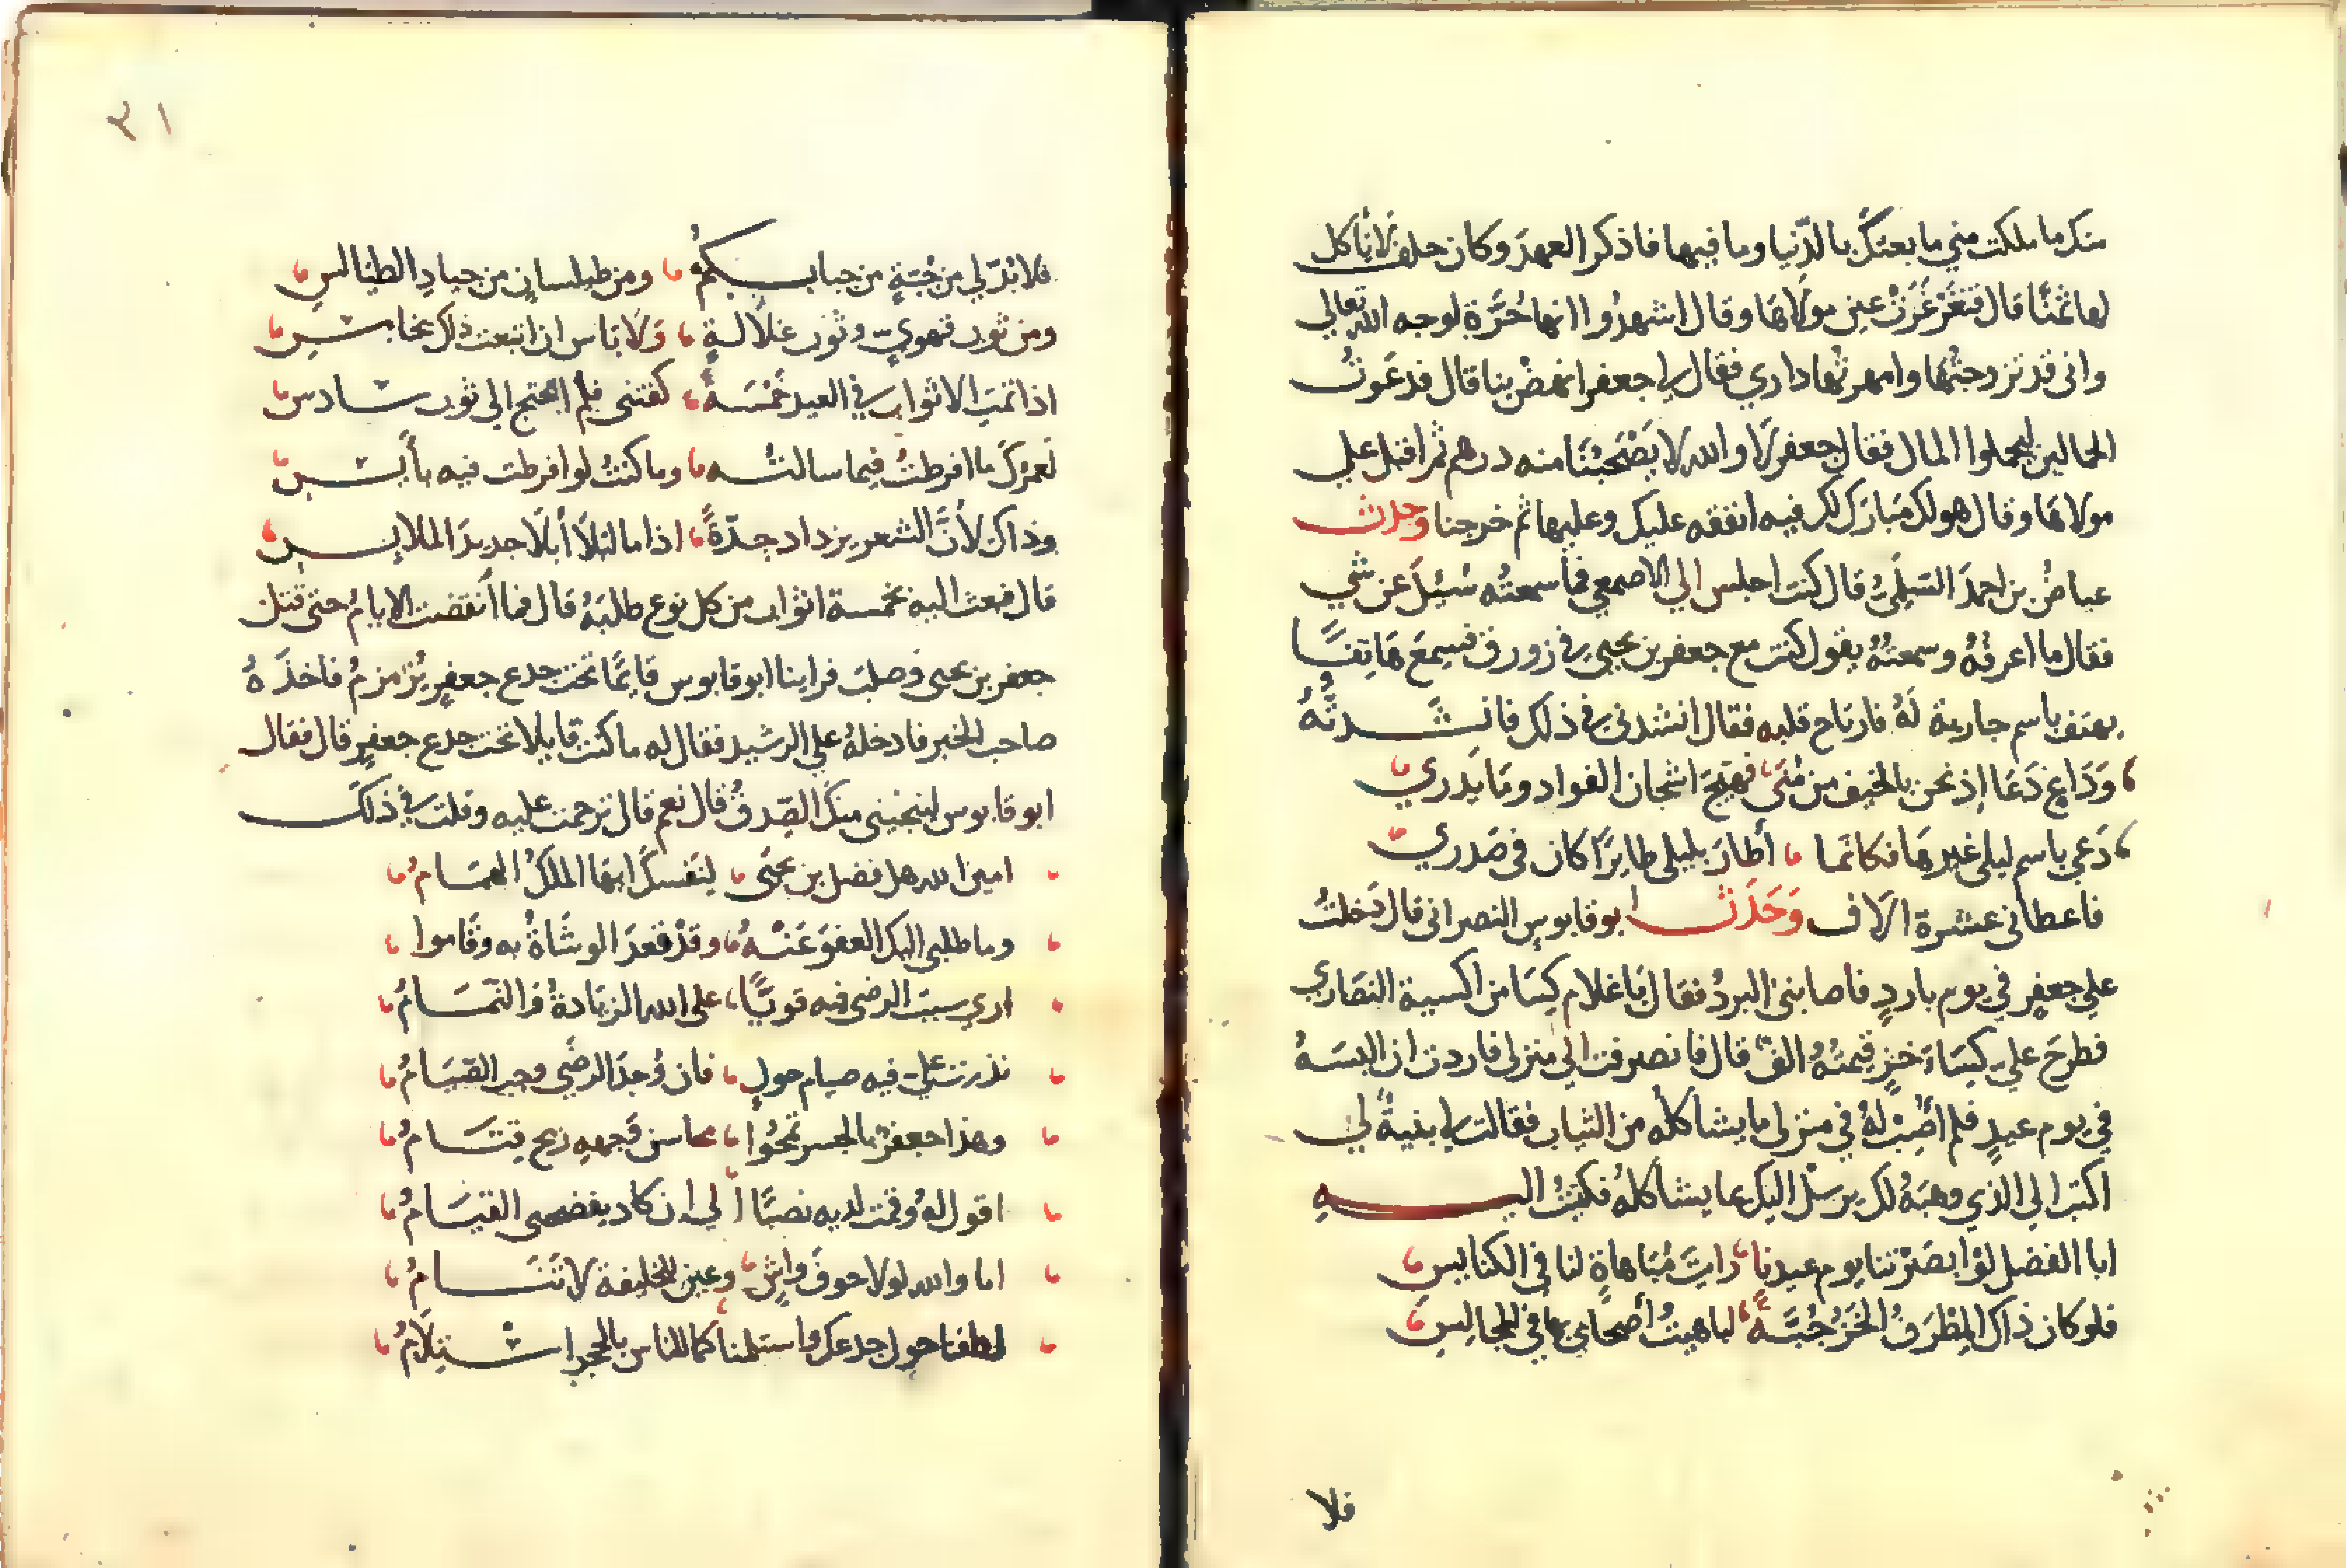 منك ما ملكت مني ما بعتك بالدنيا وما فيها فاذكر العهد وكان حلف لا ياكل
لها ثمنا قال فتغرغرت عين مولاها وقال اشهدوا انها حرة لوجه الله تعالى
واني قد تزوجتها وامهرتها داري فقال لي جعفر انهض بنا قال فدعوت
الحمالين ليحملوا المال فقال جعفر لا والله لا يصحبنا منه درهم ثم اقبل علي
مولاها وقال هو لك مبارك لك فيه انفقه عليك وعليها ثم خرجنا وحدث
عياض بن احمد السلمي قال كنت اجلس الي الاصمعي فما سمعته سئل عن شي
فقال ما اعرفه وسمعته يقول كنت مع جعفر بن يحيى في زورق فسمع هاتفا
يهتف باسم جارية له فارتاح قلبه فقال انشدني في ذلك فانشدته
وداع دعا إذ نحن بالخيف من منى فهيج اشجان الفواد وما يدري
دعي باسم ليلى غيرها فكانما أطار بليلى طايرا كان في صدري
فاعطاني عشرة الاف وحدث ابو قابوس النصراني قال دخلت
علي جعفر في يوم بارد فاصابني البرد فقال يا غلام كسا من اكسية النصاري
فطرح علي كساء خز قيمته الف قال فانصرفت الي منزلي فاردت ان البسه
في يوم عيد فلم أصب له في منزلي ما يشاكله من الثياب فقالت لي بنية لي
اكتب الي الذي وهبه لك يرسل اليك بما يشاكله فكتبت اليه
ابا الفضل لو ابصرتنا يوم عيدنا رايت مباهاة لنا في الكنايس
فلو كان ذاك المطرف الخز جبة لباهيت أصحابي بها في المجالس
فلا
٣١
فلا بد لي من جبة من جبابكم ومن طيلسان من جياد الطيالس
ومن ثوب قهوي وثوب غلالة ولا باس ان اتبعت ذاك بخامس
اذا تمت الاثواب في العيد خمسة كفتني فلم احتج الي ثوب سادس
لعمرك ما افرطت فيما سالته وما كنت لو افرطت فيه بأيس
وذاك لأن الشعر يزداد جدة اذا ما البلا أبلا جديد الملابس
قال فبعث اليه بخمسة اثواب من كل نوع طلبه قال فما انقضت الايام حتى قتل
جعفر بن يحيى وصلب فراينا ابو قابوس قايما تحت جدع جعفر يزمزم فاخذه
صاحب الخبر فادخله علي الرشيد فقال له ما كنت قايلا تحت جدع جعفر قال فقال
ابو قابوس اينجيني منك الصدق قال نعم قال ترحمت عليه وقلت في ذلك
امين الله هل فضل بن يحيى لنفسك ايها الملك الهمام
وما طلبي اليك العفو عنه وقد قعد الوشاة به وقاموا
اري سبب الرضى فيه قويا على الله الزيادة والتمام
نذرت علي فيه صيام حول فان وجد الرضي وجب القيام
وهذا جعفر بالجسر تمحوا محاسن وجهه ريح قتام
اقول له وقمت لديه نصبا الي ان كاد يفضحني القيام
اما والله لولا خوف واش وعين للخليفة لا تنام
لطفنا حول جدعك واستلمنا كما للناس بالحجر استلام